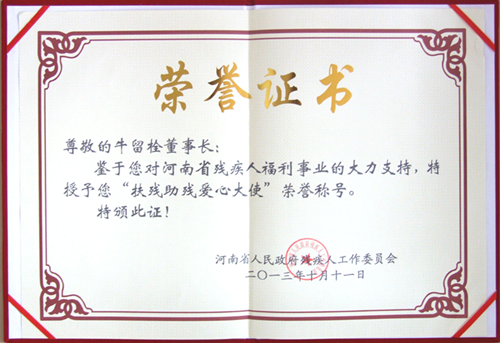 荣誉证书
尊敬的牛留栓董事长：
鉴于您对河南省残疾人福利事业的大力支持，特
授予您“扶残助残爱心大使”荣誉称号。
特颁此证！
河南省人民政府残疾人工作委员会
二〇一三年十月十一日